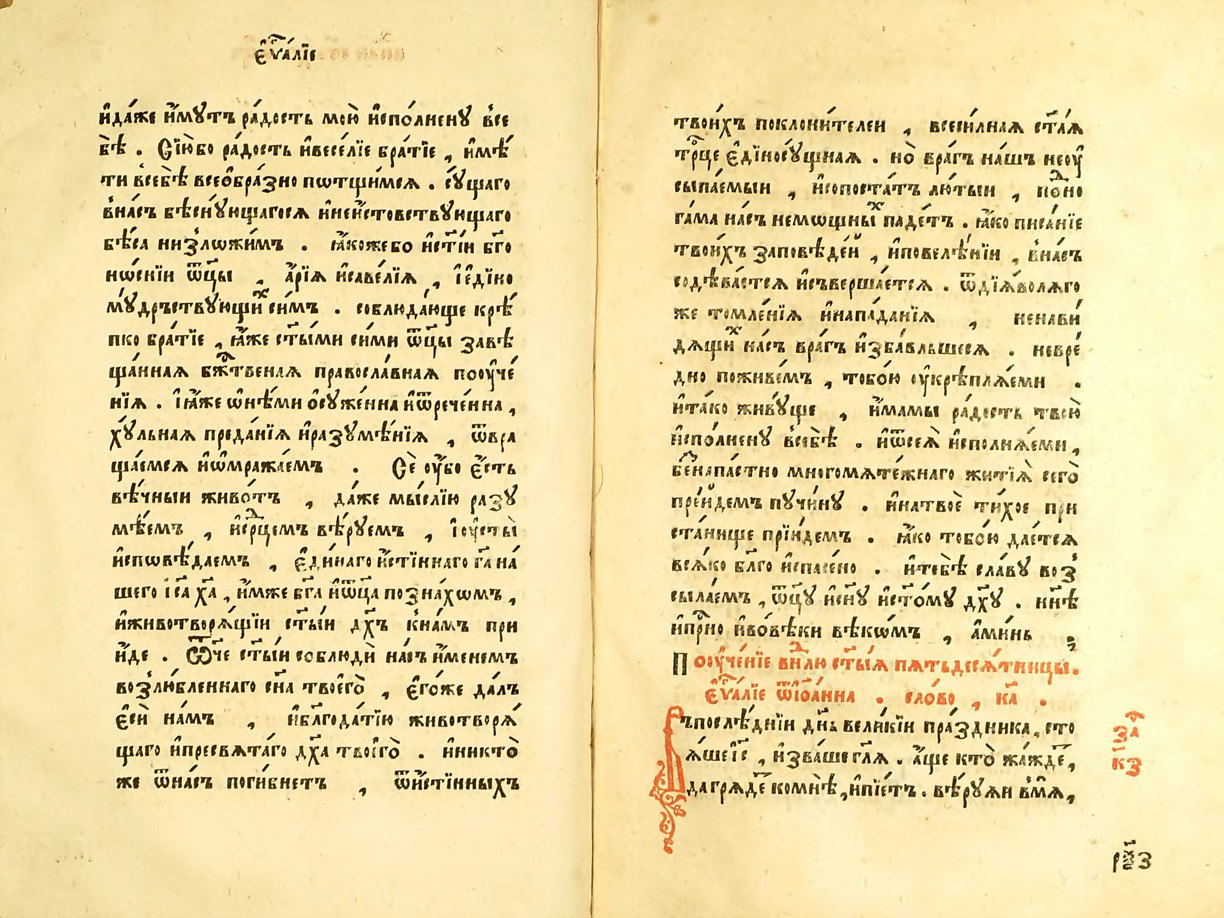 є҆ѵⷢ҇алїе
и҆да́же и҆́мꙋтъ ра́дость мою̀ и҆спо́лненꙋ все
бѣ̀ . Сїю́бо ра́дость и҆весе́лїе бра́тїе , и҆мѣ́
ти всебѣ̀ всеѻ҆бра́зно пѡтщи́мсѧ . сꙋ́щаго
вна́съ бѣснꙋ́ющагосѧ и҆неи́стовствꙋющаго
бѣ́са низлѡжи́мъ . ꙗ҆́коже бо и҆́стїи бг҃о
нѡ́снїи ѿц҃ы̀ , а҆́рїѧ и҆саве́лїѧ , і҆є҆ди́но
мꙋ́дрьствꙋющиⷯ си́мъ . соблюда́юще крѣ́
пко бра́тїе , ꙗ҆̀же ст҃ы́ми си́ми ѿц҃ы̀ завѣ́
ща́ннаѧ бжⷭ҇твенаѧ правосла́внаѧ поѹ҆че́
нїѧ . і҆ꙗ҆̀же ѡ҆ни́ми ѻ҆сꙋже́нна и҆ѿрече́нна ,
хꙋ́льнаѧ преда́нїѧ и҆разꙋмѣ́нїѧ , ѿвра
ща́емсѧ и҆ѡ҆мража́емъ . Сѐ ᲂу҆́бо є҆́сть
вѣ́чныи живо́тъ , да́же мы́слїю разꙋ
мѣ́емъ , и҆срⷣцемъ вѣ́рꙋемъ , і҆ᲂу҆сты̀
и҆сповѣ́даемъ , є҆ди́наго и҆́стїннаго гаⷭ҇ на́
шего і҆с҃а хр҃а , и҆́мже бг҃а и҆ѿц҃а позна́хомъ ,
и҆животворѧ́щїи ст҃ы́и дх҃ъ кна́мъ при
и҆́де . Ѿ́че ст҃ы́и соблюдѝ на́съ и҆́менемъ
возлю́бленнаго сн҃а твоего̀ , є҆го́же да́лъ
є҆сѝ на́мъ , и҆благода́тїю животворѧ́
щаго и҆пресвѧта́го дх҃а твоегѡ̀ . и҆никто̀
же ѿна́съ поги́бнетъ , ѿи҆́стїнныхъ
твои́хъ поклони́телеи , всеси́лнаѧ ст҃а́ѧ
трⷪ҇це є҆диносꙋ́щнаѧ . но̀ вра́гъ на́шъ неᲂу҆
сыпа́емыи , и҆сопоста́тъ лю́тыи , пѻ́но
га́ма на́съ не́мѡщныⷯ паде́тъ . ꙗ҆́ко писа́нїе
твои́хъ за́повѣдей , и҆повелѣ́нїи , вна́съ
содѣ́ваетсѧ и҆съверша́етсѧ . ѿдїѧ́волѧго
же томле́нїѧ и҆напа́данїѧ , ненави
дѧ́щиⷯ на́съ вра́гъ и҆зба́вльшесѧ . невре́
дно поживе́мъ , тобо́ю ᲂу҆крѣплѧ́еми .
и҆та́ко живꙋ́ще , и҆́мамы ра́дость твою̀
и҆спо́лненꙋ всебѣ̀ . и҆ѿсеѧ̀ и҆сполнѧ́еми ,
бе́напа́стно многомѧте́жнаго житїѧ̀ сего̀
пре́йдемъ пꙋчи́нꙋ . и҆натвоѐ ти́хое при
ста́нище прїи́демъ . ꙗ҆́ко тобо́ю дае́тсѧ
всѧ́ко бл҃го и҆спасе́но . и҆тебѣ̀ сла́вꙋ воз
сыла́емъ , ѿц҃ꙋ̀ и҆сн҃ꙋ и҆ст҃о́мꙋ дх҃ꙋ . нн҃ѣ
и҆прⷭ҇но и҆во́вѣки вѣкѡ́мъ , а҆ми́нь
Поᲂу҆че́нїе внⷣлю ст҃ы́ѧ пѧтьдесѧ́тницы .
є҆ѵⷢ҇а́лїе ѿі҆ѡа́нна . сло́во , к҃а .
Въпослѣ́днїи дн҃ь вели́кїи пра́здника , сто
ѧ́ше і҆с҃ , и҆зва́ше гл҃ѧ . а҆́ще кто̀ жа́ждеⷮ ,
да грѧде́ⷮ комнѣ̀ , и҆пїе́тъ . вѣ́рꙋѧи вмѧ̀ ,
заⷱ҇
к҃з
рк҃з